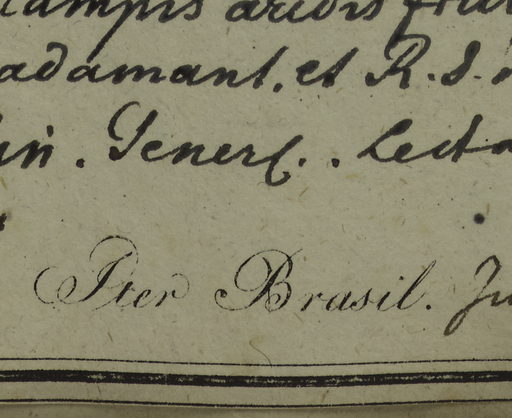 campis aridis
adamant. et R. S.
Generis. Lecta
Iter Brasil. Ju